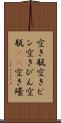 空き瓶空きビ
ン空きびん空
瓶空き壜